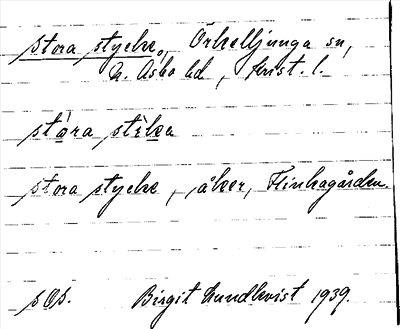 stora stycke, Örkelljunga sn,
N. Åsbo hd, Krist. l.
stòra stìka
stora stycke, åker, Flinkagården.
sOs. Birgit Lundkvist 1939.